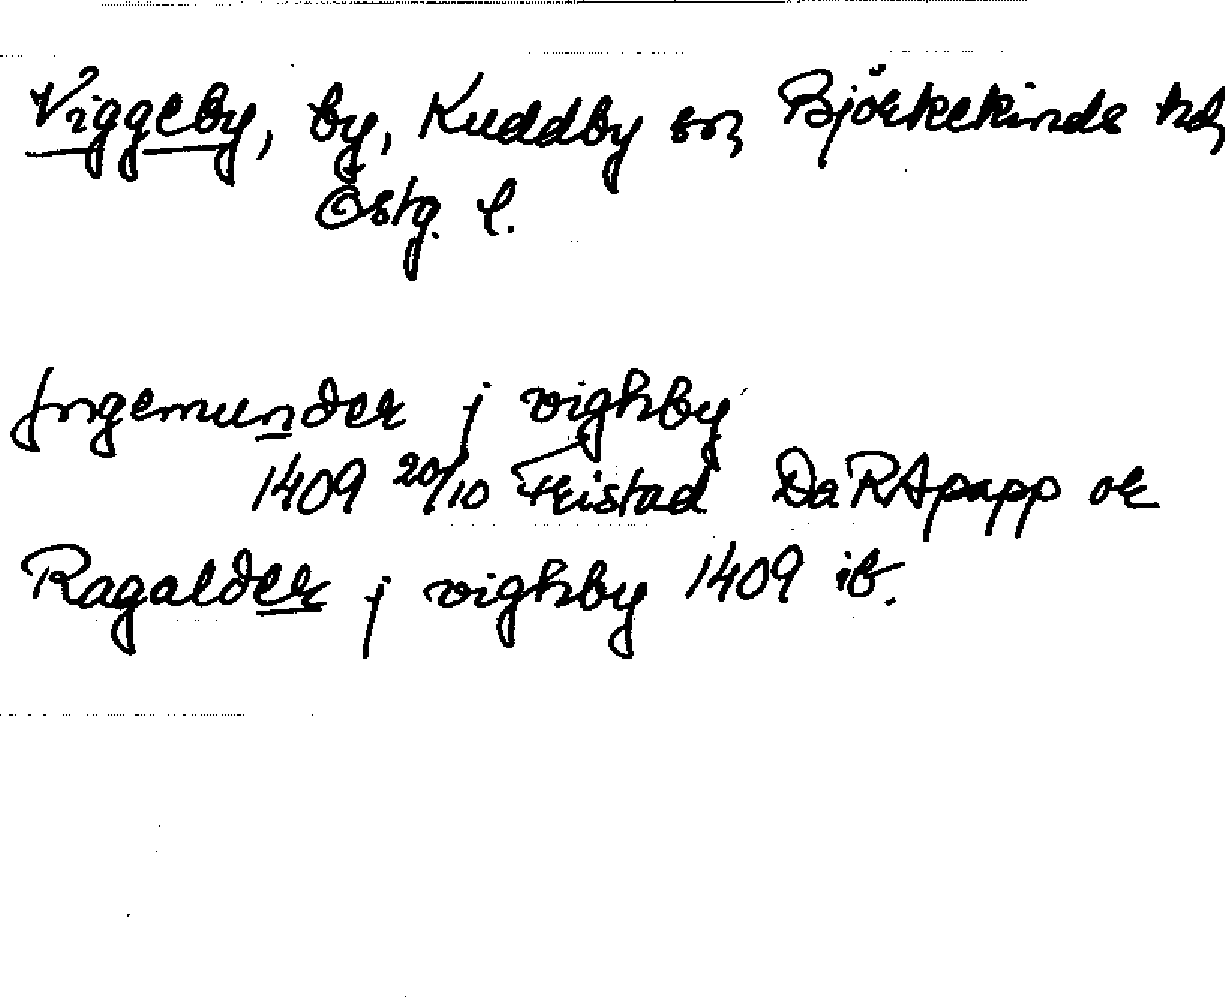 Viggeby, by, Kuddby sn, Björkekinds hd,
Östg. l.
Jngemunder j vighby
1409 20/10 Fristad DaRApapp or
Ragalder j vighby 1409 ib.